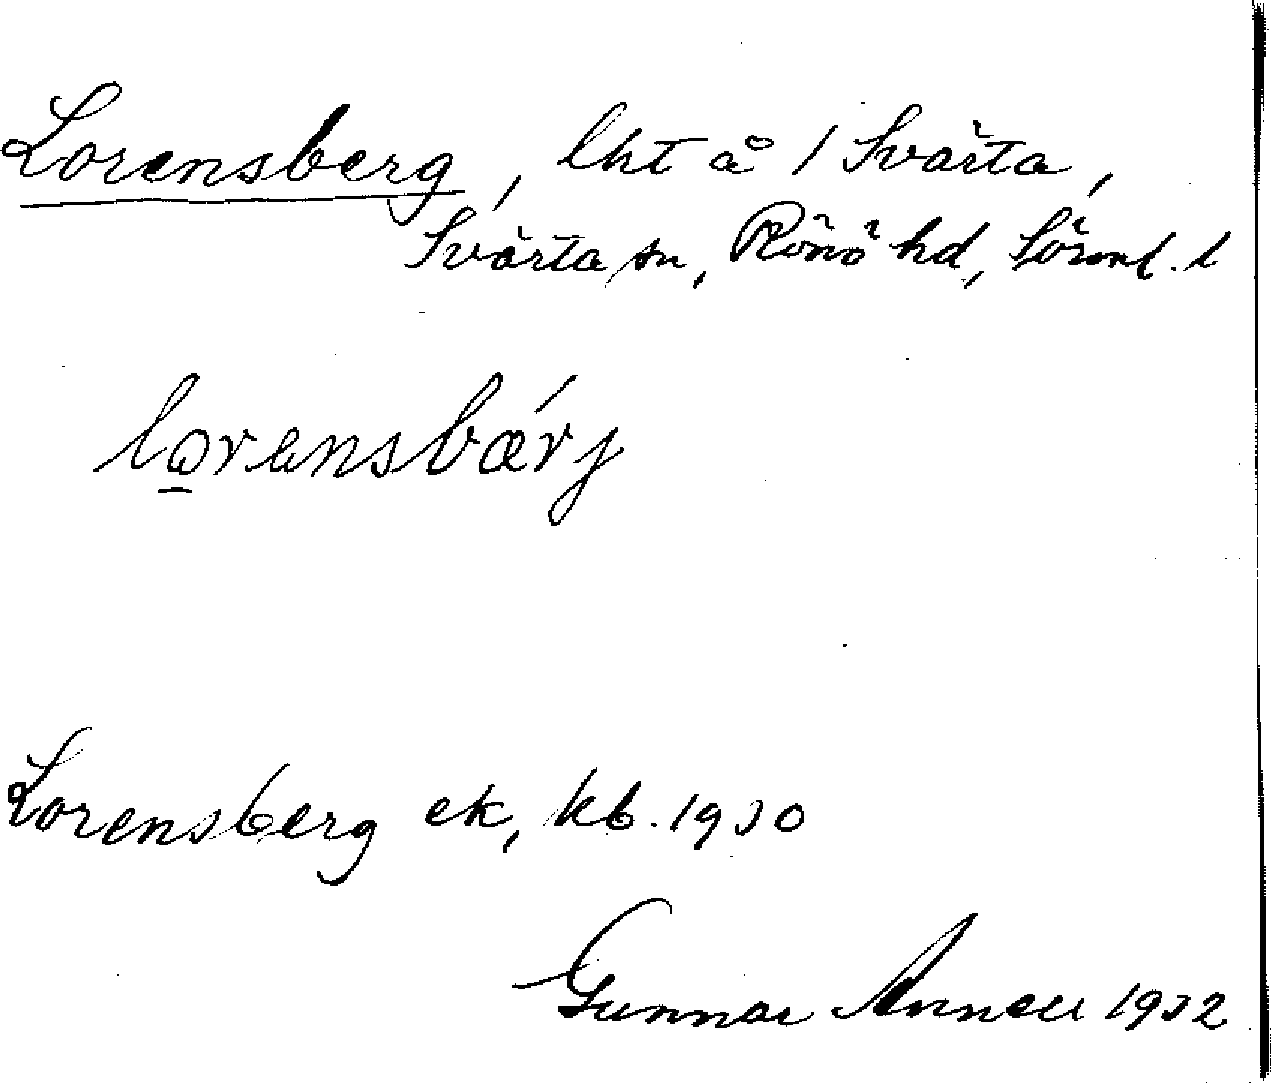 Lorensberg, lht å / Svärta,
Svärta sn, Rönö hd, Sörml. l
lorensbǽrj
Lorensberg ek, kb. 1930
Gunnar Annell 1932